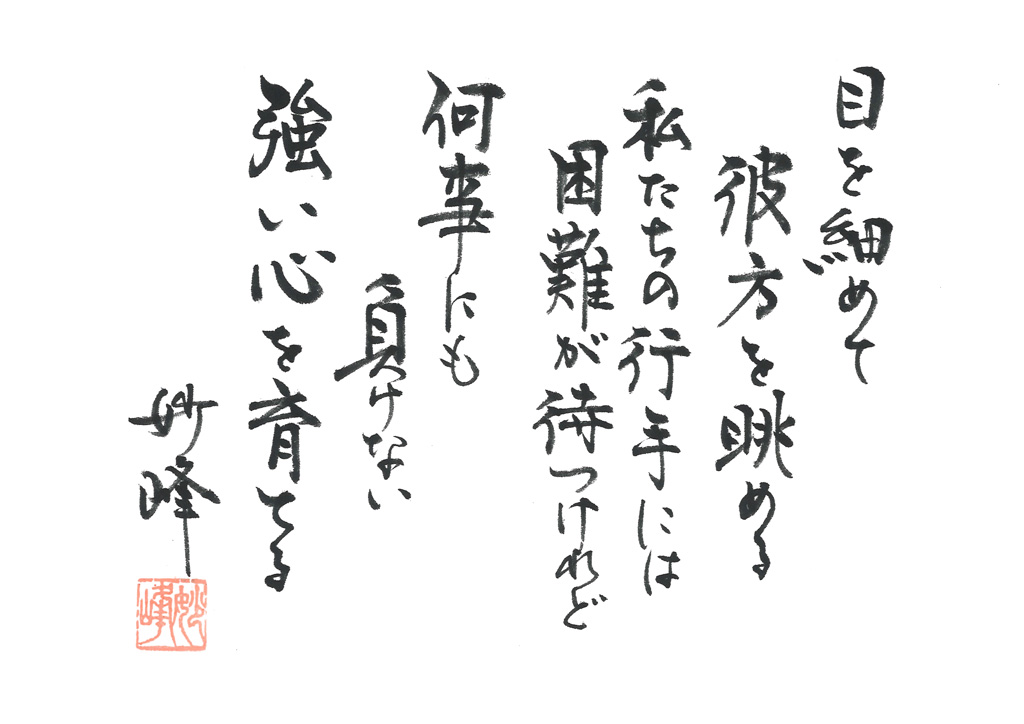 目を細めて
彼方を眺める
私たちの行手には
困難が待つけれど
何事にも
負けない
強い心を育てる
妙峰
妙峰